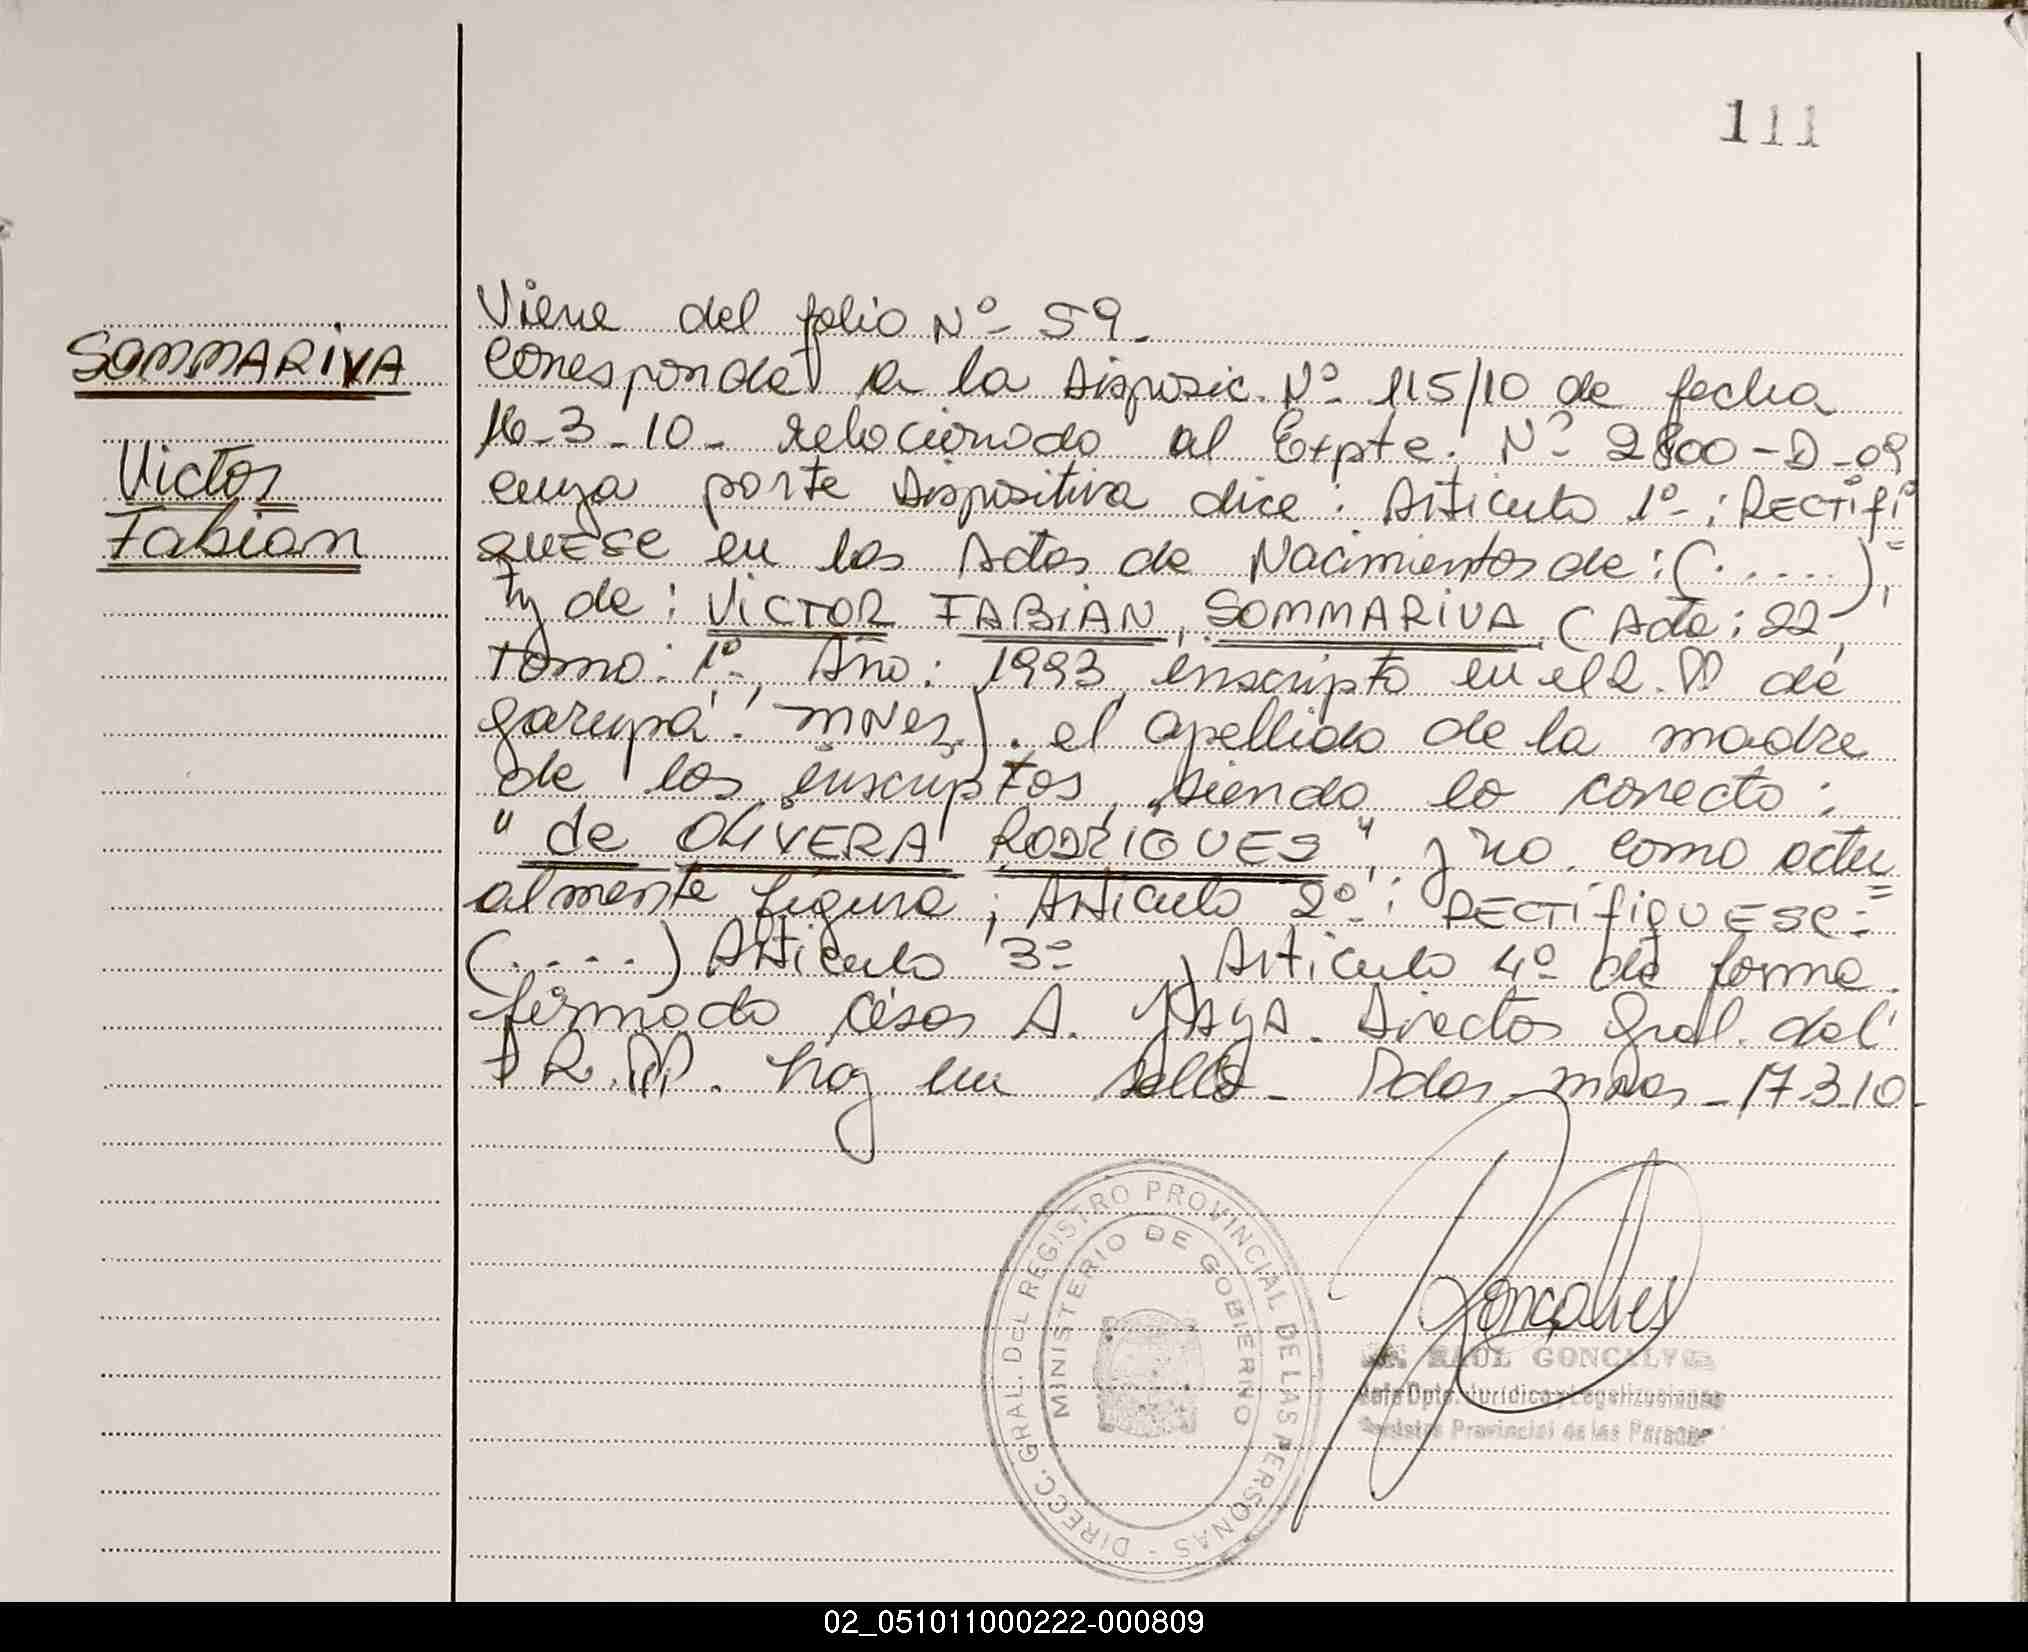 111
Viene del folio Nº 59.
SOMMARIVA
Corresponde a la Disposic. Nº 115/10 de fecha
16-3-10- relacionado al Expte. Nº 2800-D-09
Victor
cuya parte dispositiva dice: Articulo 1º-: RECTIFI
Fabian
QUESE en las Actas de Nacimientos de: (.....),
y de: VICTOR FABIAN, SOMMARIVA (Acta: 22,
Tomo: 1º-, Año: 1993, inscripto en el R.PP de
Garupá- MNES). el apellido de la madre
de los inscriptos, siendo lo correcto:
"de OLIVERA RODRIGUES", y no como actu
almente figura; Articulo 2º-: RECTIFIQUESE:
(....) Articulo 3º y Articulo 4º de forma.
firmado César A. YAYA. Director Gral. del
R.PP. hay un sello- Pdas-mnes-17-3-10-
DIRECC. GRAL. DEL REGISTRO PROVINCIAL DE LAS PERSONAS -
MINISTERIO DE GOBIERNO
Goncalves
RAUL GONCALVES
Jefe Dpto. Jurídico y Legalizaciones
Registro Provincial de las Personas
02_051011000222-000809